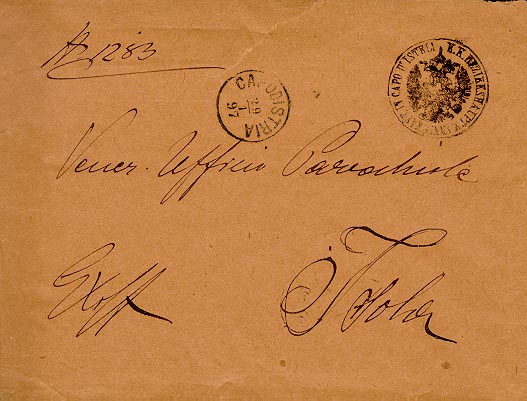 № 1283
CAPODISTRIA
29
1
97
K.K. BEZIRKSHAUPTMANNSCHAFT IN CAPO D'ISTRIA
Vener. Ufficio Parochiale
Exoff
Isola